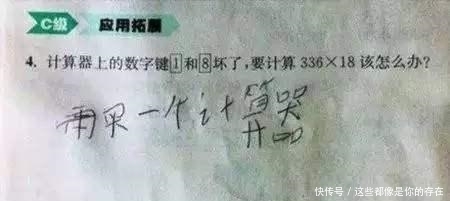 C级 应用拓展
4. 计算器上的数字键1和8坏了,要计算336×18该怎么办?
再买一个计算器
快传号/这些都像是你的存在